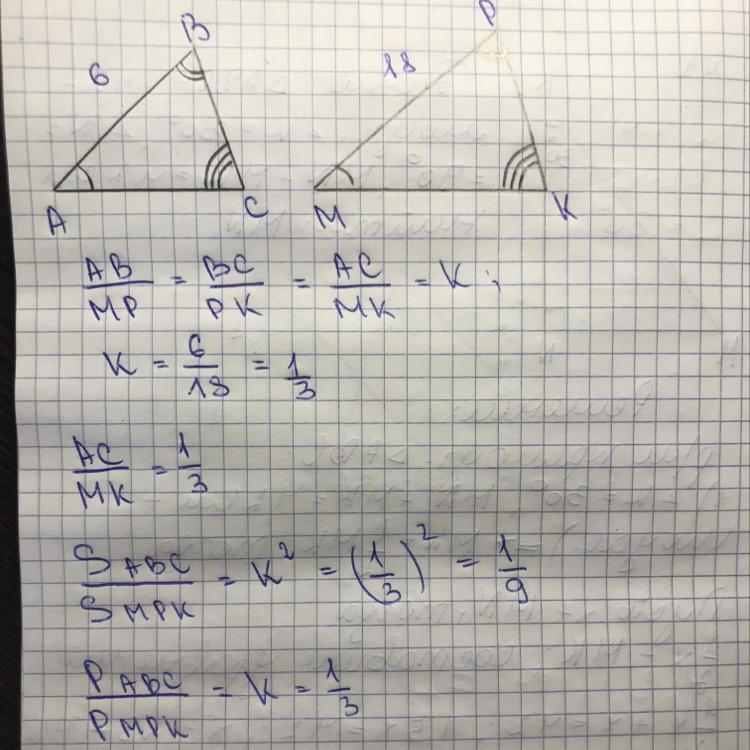 B P
6 18
A C M K
AB/MP = BC/PK = AC/MK = K ;
K = 6/18 = 1/3
AC/MK = 1/3
S ABC/S MPK = K² = (1/3)² = 1/9
P ABC/P MPK = K = 1/3